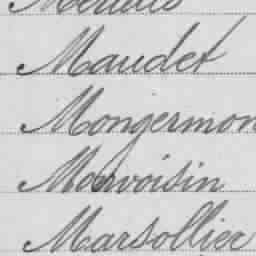 Maudet
Mongermon
Morvoisin
Marsollier